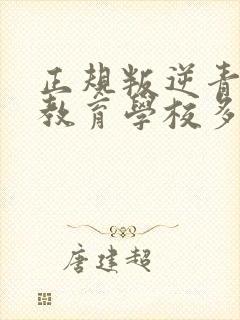 正规叛逆青
教育学校多
唐建超